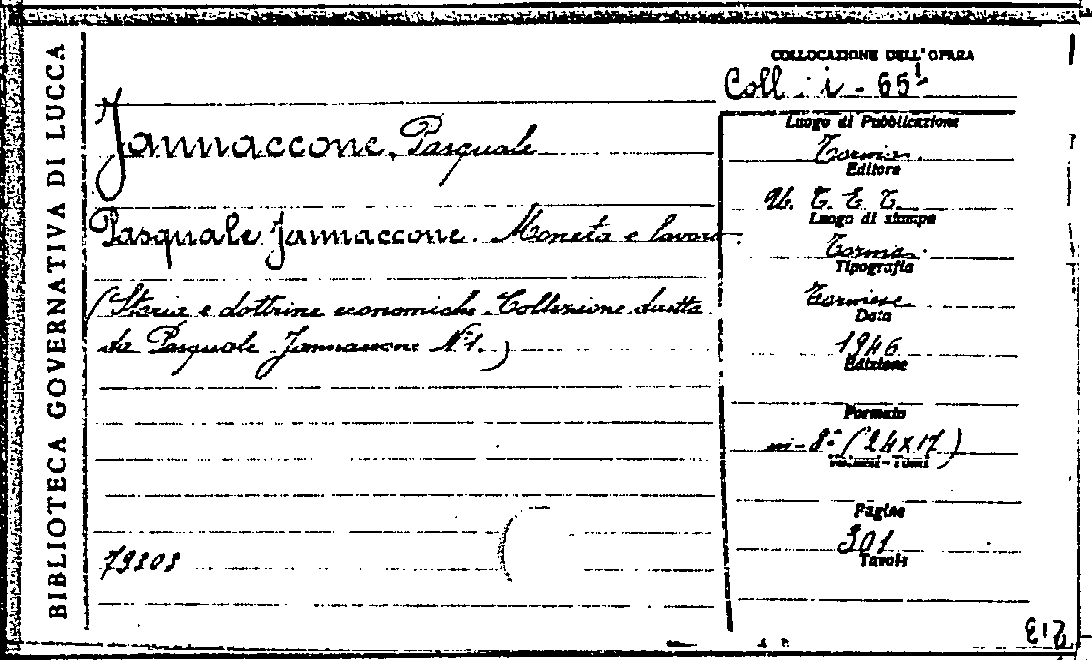 BIBLIOTECA GOVERNATIVA DI LUCCA
Jannaccone, Pasquale
Pasquale Jannaccone. Moneta e lavoro.
(Storia e dottrine economiche. Collezione diretta
da Pasquale Jannaccone N.º 1.)
79808
COLLOCAZIONE DELL'OPARA
Coll. i - 65¹
Luogo di Pubblicazione
Torino.
Editore
U. T. E. T.
Luogo di stampa
Torino.
Tipografia
Torinese
Data
1946
Edizione
Formato
in-8º (24x17)
Volumi-Tomi
Pagine
301
Tavole